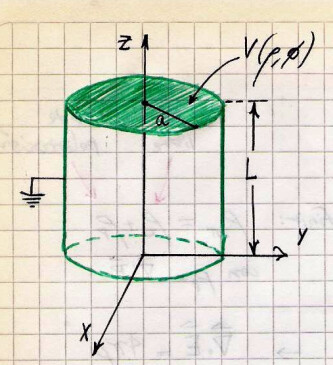 Z
V(ρ,φ)
a
L
Y
X